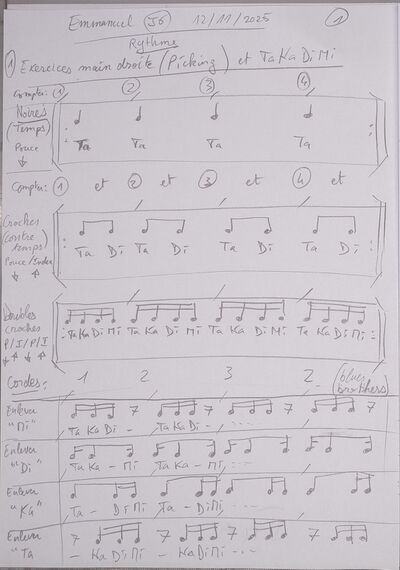 Emmanuel J6 12/11/2025 1
Rythme
1 Exercices main droite (Picking) et TaKaDiMi
Compter: 1 2 3 4
Noires
(Temps)
Pouce
Ta Ta Ta Ta
Compter: 1 et 2 et 3 et 4 et
Croches
(contre
temps)
Pouce/Index
Ta Di Ta Di Ta Di Ta Di
Doubles
croches
P/I/P/I
Ta Ka Di Mi Ta Ka Di Mi Ta Ka Di Mi Ta Ka Di Mi
Cordes: 1 2 3 2 (blues brothers)
Enlever
"Mi"
Ta Ka Di - Ta Ka Di - ...
Enlever
"Di"
Ta Ka - Mi Ta Ka - Mi, ...
Enlever
"Ka"
Ta - Di Mi Ta - Di Mi ...
Enlever
"Ta
- Ka Di Mi - Ka Di Mi - ...